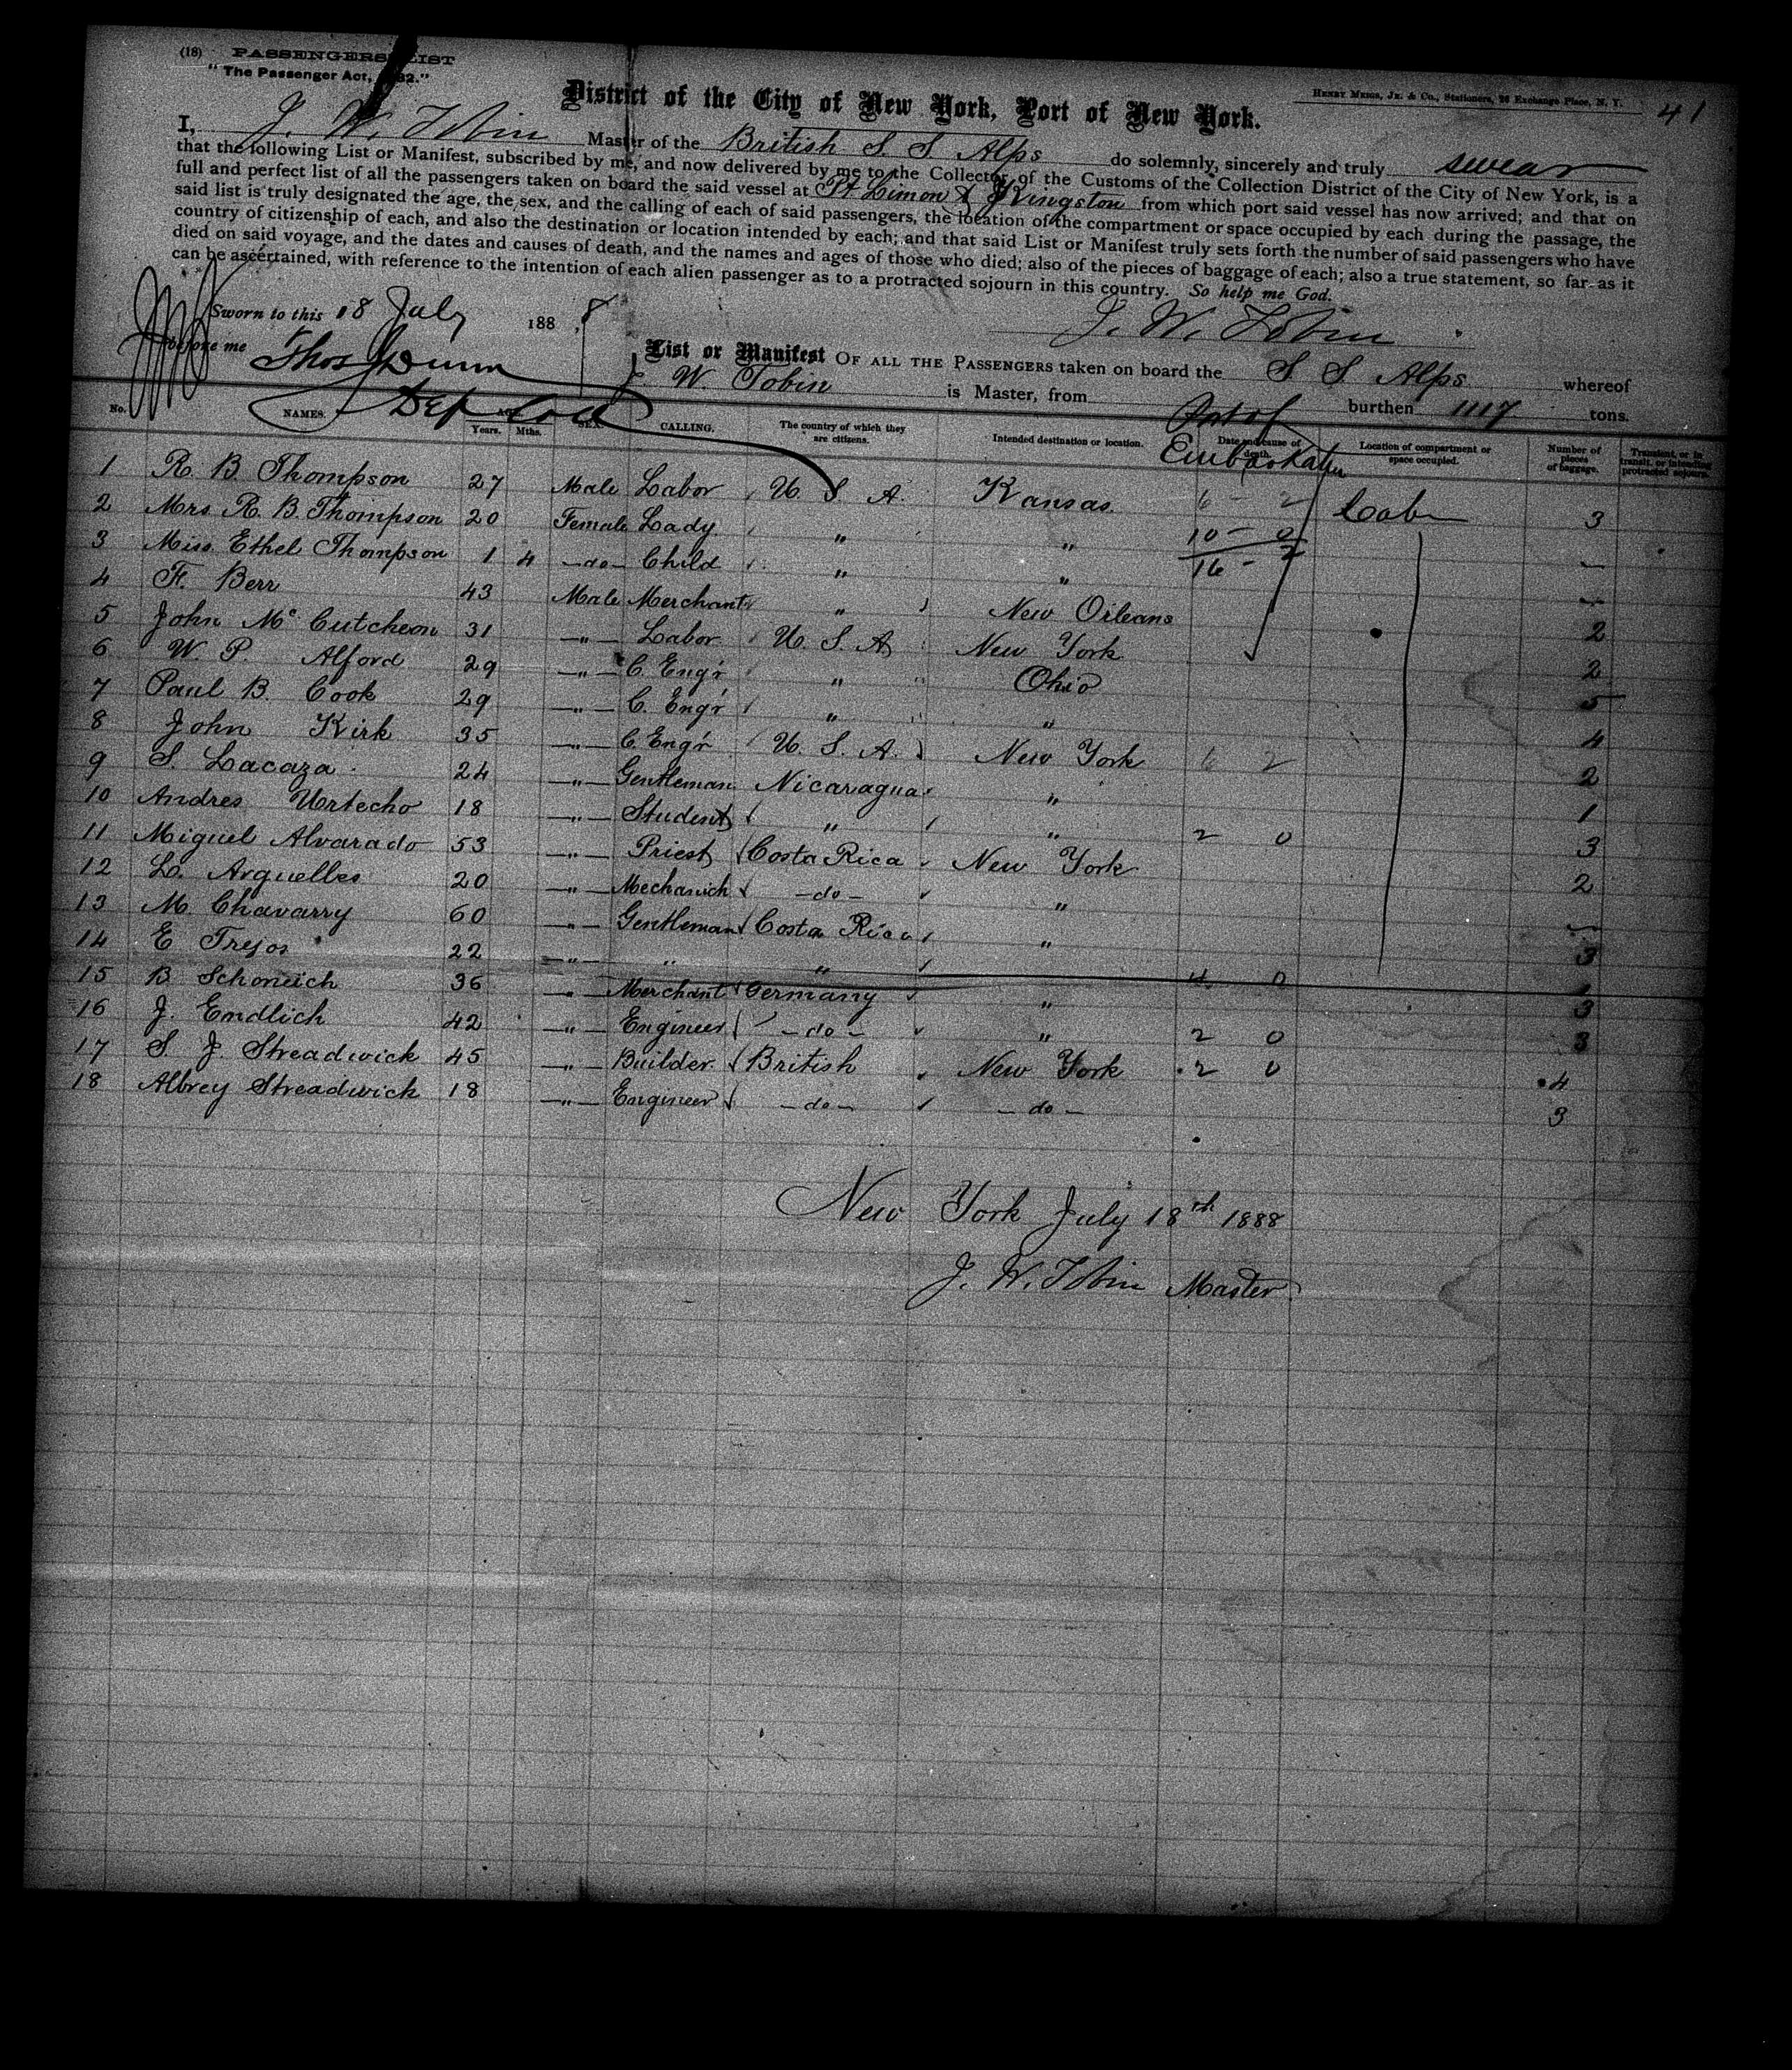 (18) PASSENGERS' LIST
"The Passenger Act, 1882."
HENRY MEIGS, JR. & CO., Stationers, 26 Exchange Place, N. Y.
41
District of the City of New York, Port of New York.
I, J. W. Tobin Master of the British S. S. Alps do solemnly, sincerely and truly swear
that the following List or Manifest, subscribed by me, and now delivered by me to the Collector of the Customs of the Collection District of the City of New York, is a
full and perfect list of all the passengers taken on board the said vessel at Pt Limon & Kingston from which port said vessel has now arrived; and that on
said list is truly designated the age, the sex, and the calling of each of said passengers, the location of the compartment or space occupied by each during the passage, the
country of citizenship of each, and also the destination or location intended by each; and that said List or Manifest truly sets forth the number of said passengers who have
died on said voyage, and the dates and causes of death, and the names and ages of those who died; also of the pieces of baggage of each; also a true statement, so far as it
can be ascertained, with reference to the intention of each alien passenger as to a protracted sojourn in this country. So help me God.
Sworn to this 18 July 1888
J. W. Tobin
before me Thos Dunn
Dep Coll
List or Manifest OF ALL THE PASSENGERS taken on board the S. S. Alps whereof
J. W. Tobin is Master, from burthen 1117 tons.
No. NAMES. AGE. Years. Mths. SEX. CALLING. The country of which they are citizens. Intended destination or location. Date and cause of death. Port of Embarkation Location of compartment or space occupied. Number of pieces of baggage. Transient, or in transit, or intending protracted sojourn.
1 R. B. Thompson 27 Male Labor U. S. A. Kansas 6 - 2 Cabin 3
2 Mrs. R. B. Thompson 20 Female Lady " " 10 - 0 —
3 Miss. Ethel Thompson 1 4 -do- Child " " 16 - 2 —
4 F. Berr 43 Male Merchant " New Orleans 2
5 John McCutcheon 31 -"- Labor U. S. A. New York 2
6 W. P. Alford 29 -"- C. Eng'r " Ohio 5
7 Paul B. Cook 29 -"- C. Eng'r " " 4
8 John Kirk 35 -"- C. Eng'r U. S. A. New York 6 2 2
9 S. Lacaza 24 -"- Gentleman Nicaragua " 1
10 Andres Urtecho 18 -"- Student " " 2 0 3
11 Miguel Alvarado 53 -"- Priest Costa Rica New York 2
12 L. Arguelles 20 -"- Mechanich -do- " —
13 M. Chavarry 60 -"- Gentleman Costa Rica " 3
14 E. Trejos 22 -"- " " 4 0 1
15 B. Schoneich 36 -"- Merchant Germany " 3
16 J. Endlich 42 -"- Engineer -do- " 2 0 3
17 S. J. Streadwick 45 -"- Builder British New York 2 0 4
18 Albrey Streadwick 18 -"- Engineer -do- -do- 3
New York July 18th 1888
J. W. Tobin Master